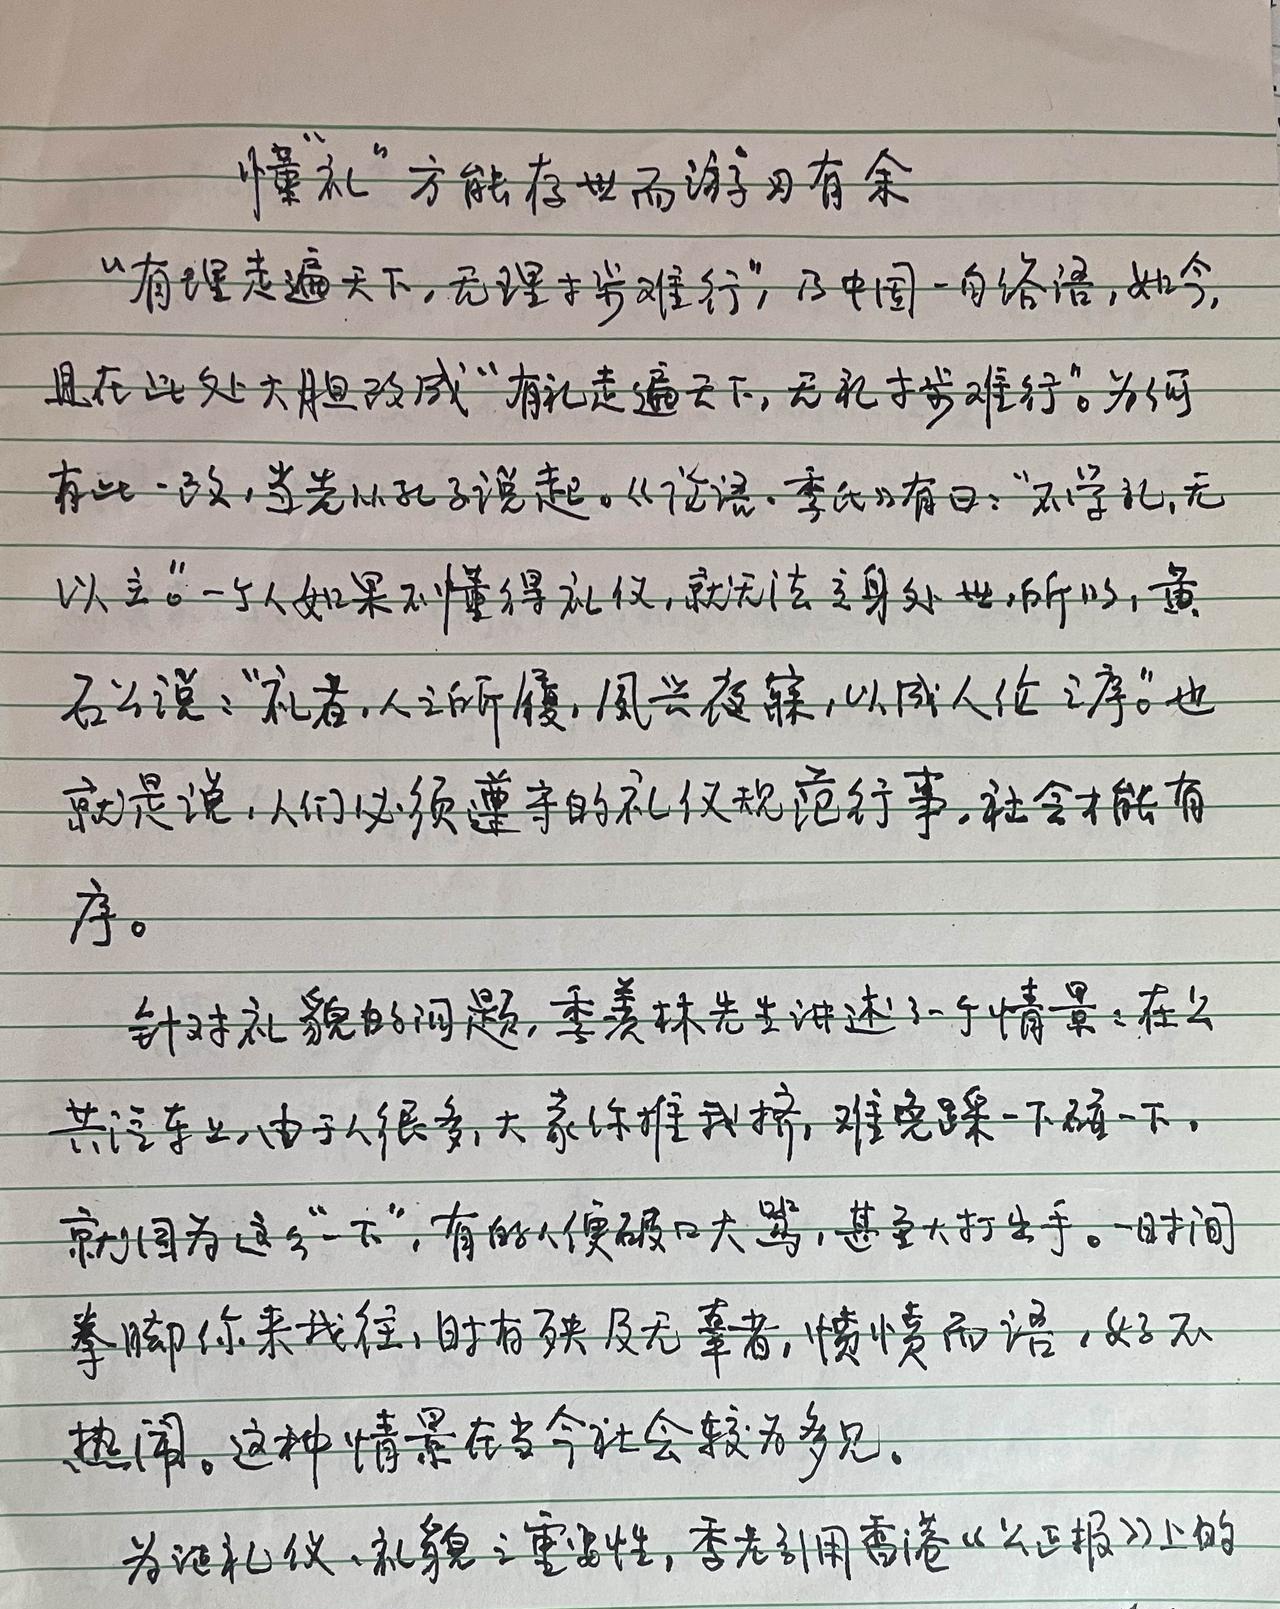 懂“礼”方能存世而游刃有余
“有理走遍天下,无理寸步难行”,乃中国一句俗语,如今,
且在此处大胆改成“有礼走遍天下,无礼寸步难行”。为何
有此一改,当先从孔子说起。《论语·季氏》有曰:“不学礼,无
以立”。一个人如果不懂得礼仪,就无法立身处世,所以,黄
石公说:“礼者,人之所履,夙兴夜寐,以成人伦之序”。也
就是说,人们必须遵守的礼仪规范行事,社会才能有
序。
针对礼貌的问题,季羡林先生讲述了一个情景:在公
共汽车上,由于人很多,大家你推我挤,难免踩一下碰一下。
就因为这么“一下”,有的人便破口大骂,甚至大打出手。一时间
拳脚你来我往,时有殃及无辜者,愤愤而语,好不
热闹。这种情景在当今社会较为多见。
为证礼仪、礼貌之重要性,季老引用香港《公正报》上的